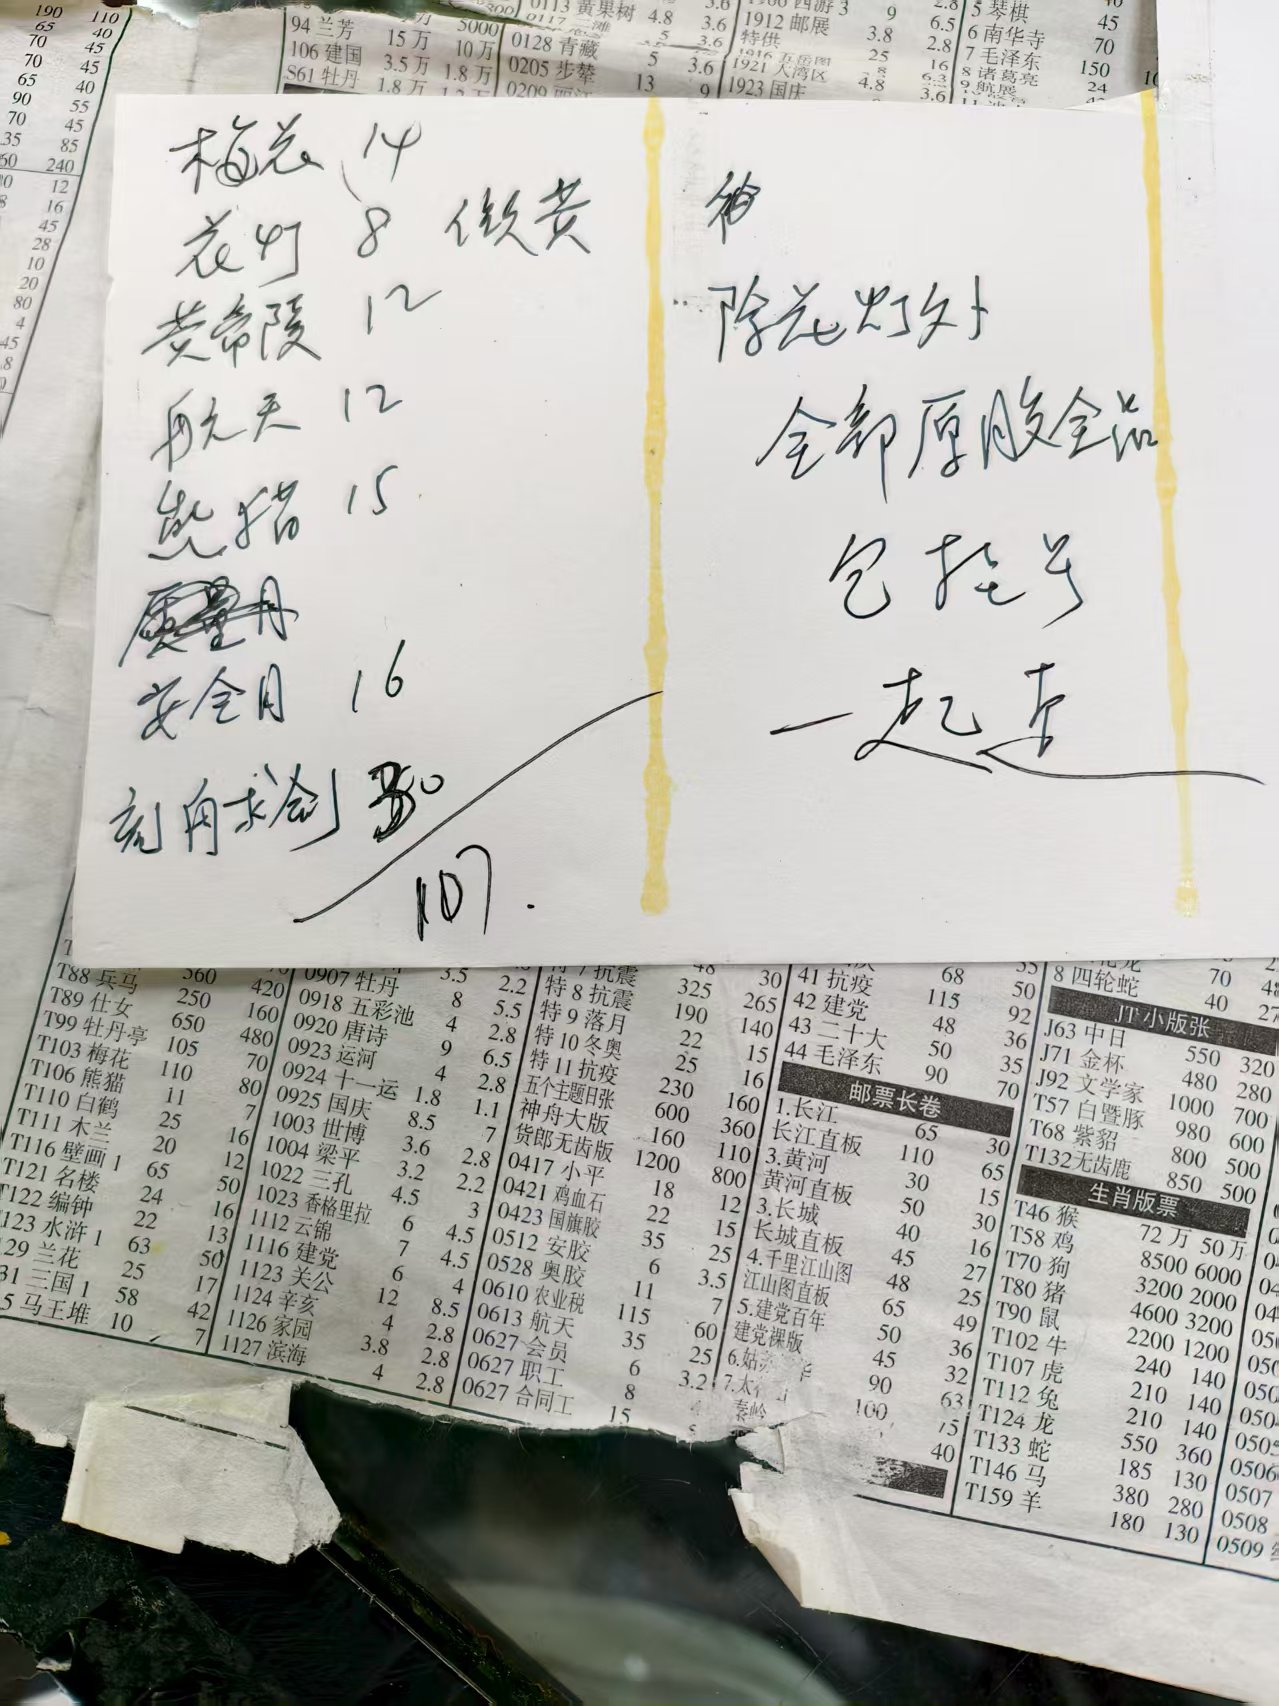 94 兰芳 15万 10万
106 建国 3.5万 1.8万
S61 牡丹 1.8万
0113 黄果树 4.8 3.6
0128 青藏 5 3.6
0205 步辇 13 9
1912 邮展 3.8 2.8
特供 25 16
1921 大湾区 8 6.3
1923 国庆 4.8 3.6
5 琴棋 45
6 南华寺 70
7 毛泽东 150
8 诸葛亮 24
9 航展
梅花 14
花灯 8 微黄
黄帝陵 12
航天 12
熊猫 15
安全月 16
刻舟求剑 30
107.
除花灯外
全部原胶全品
包挂号
一起走
T88 兵马 560 420
T89 仕女 250 160
T99 牡丹亭 650 480
T103 梅花 105 70
T106 熊猫 110 80
T110 白鹤 11 7
T111 木兰 25 16
T116 壁画1 20 12
T121 名楼 65 50
T122 编钟 24 16
T123 水浒1 22 13
129 兰花 63 50
31 三国1 25 17
5 马王堆 58 42
10 7
0907 牡丹 3.5 2.2
0918 五彩池 8 5.5
0920 唐诗 4 2.8
0923 运河 9 6.5
0924 十一运 4 2.8
0925 国庆 1.8 1.1
1003 世博 8.5 7
1004 梁平 3.6 2.8
1022 三孔 3.2 2.2
1023 香格里拉 4.5 3
1112 云锦 6 4.5
1116 建党 7 4.5
1123 关公 6 4
1124 辛亥 12 8.5
1126 家园 4 2.8
1127 滨海 3.8 2.8
4 2.8
特 7 抗震 48 30
特 8 抗震 325 265
特 9 落月 190 140
特 10 冬奥 22 15
特 11 抗疫 25 16
五个主题日张 230 160
神舟大版 600 360
货郎无齿版 160 110
0417 小平 1200 800
0421 鸡血石 18 12
0423 国旗胶 22 15
0512 安胶 35 25
0528 奥胶 6 3.5
0610 农业税 11 7
0613 航天 115 60
0627 会员 35 25
0627 职工 6 3.2
0627 合同工 8
15
41 抗疫 68 50
42 建党 115 92
43 二十大 48 36
44 毛泽东 50 35
90 70
邮票长卷
1.长江 65 30
长江直板 110 65
3.黄河 30 15
黄河直板 50 30
3.长城 40 16
长城直板 45 27
4.千里江山图 48 25
江山图直板 65 49
5.建党百年 50 36
建党裸版 45 32
90 63
100 75
40
8 四轮蛇 70 48
40 27
JT小版张
J63 中日 550 320
J71 金杯 480 280
J92 文学家 1000 700
T57 白暨豚 980 600
T68 紫貂 800 500
T132无齿鹿 850 500
生肖版票
T46 猴 72万 50万
T58 鸡 8500 6000
T70 狗 3200 2000
T80 猪 4600 3200
T90 鼠 2200 1200
T102 牛 240 140
T107 虎 210 140
T112 兔 210 140
T124 龙 550 360
T133 蛇 185 130
T146 马 380 280
T159 羊 180 130
0506
0507
0508
0509